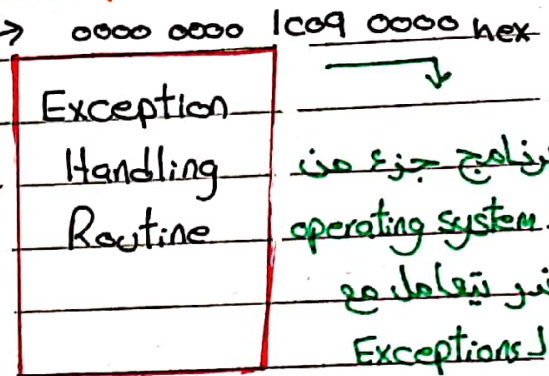 → 0000 0000 1c09 0000 hex
Exception
Handling
Routine
برنامج جزء من
operating system.
يتعامل مع
الـ Exceptions